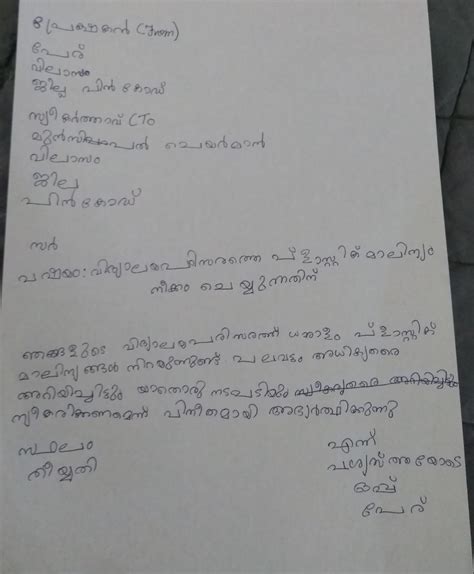 പ്രേഷകൻ (From)
പേര്
വിലാസം
ജില്ല പിൻകോഡ്
സ്വീകർത്താവ് (To
മുൻസിപ്പൽ ചെയർമാൻ
വിലാസം
ജില്ല
പിൻകോഡ്
സർ
വിഷയം: വിദ്യാലയപരിസരത്തെ പ്ളാസ്റ്റിക് മാലിന്യം
നീക്കം ചെയ്യുന്നതിന്
ഞങ്ങളുടെ വിദ്യാലയപരിസരത്ത് ധാരാളം പ്ളാസ്റ്റിക്
മാലിന്യങ്ങൾ നിറയുന്നുണ്ട്. പലവട്ടം അധികൃതരെ
അറിയിച്ചിട്ടും യാതൊരു നടപടിയും
സ്വീകരിക്കണമെന്ന് വിനീതമായി അഭ്യർത്ഥിക്കുന്നു
സ്ഥലം
തീയ്യതി
എന്ന്
വിശ്വസ്തതയോടെ
ഒപ്പ്
പേര്